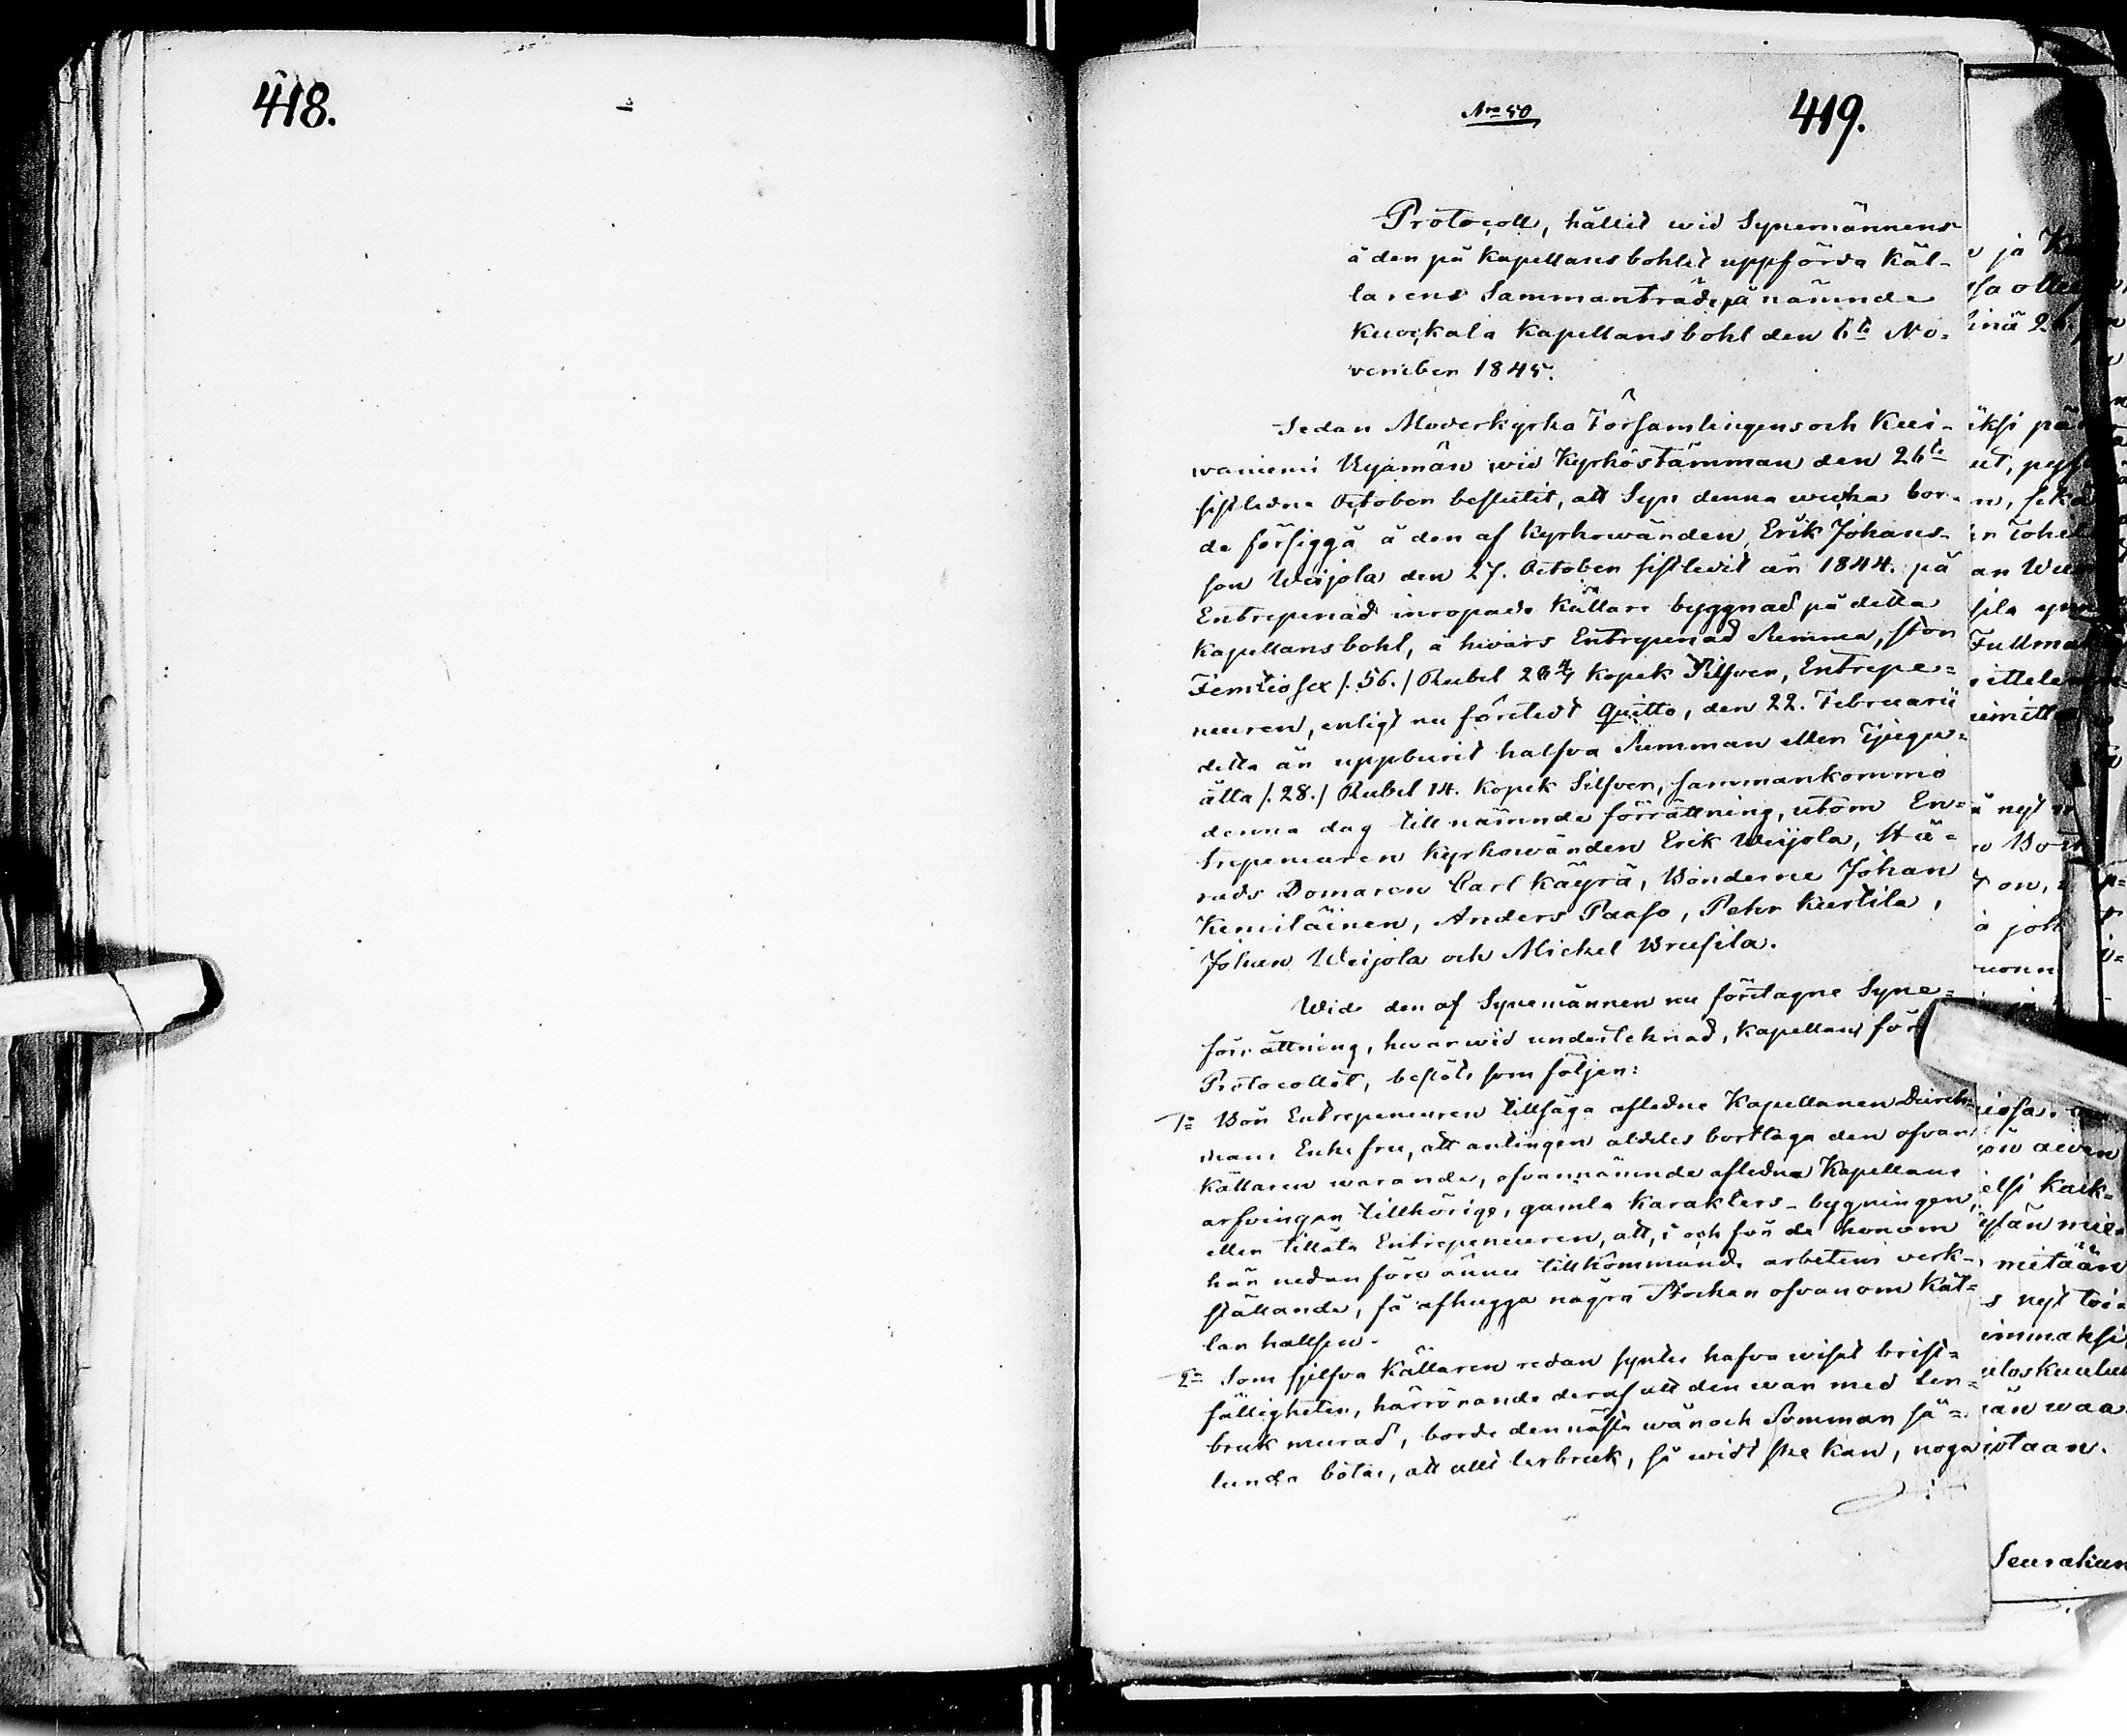 418.
Nro 50
419.
Protocoll, hållit wid Synemännens
å den på Kapellansbohlet uppförda Käl-
larens Sammanträde på nämnde
Kapellansbohl den 6te No-
vember 1845.
Sedan Moderkyrko Församlingens och Kui-
waniemi Byamän wid Kyrkostämman den 26te
sistledne October beslutit, att Syn denna wecka bor-
de försiggå å den af Kyrkowärden Erik Johans-
son Weijola den 27. October sistledit år 1844. på
Entreprenad inropade Källare byggnad på detta
Kapellansbohl, å hwars Entreprenad Summa, stor
Femtiosex /.56./ Rubel 28 4/7 Kopek Silfver, Entrepre-
neuren, enligt nu företedt Quitto, den 22. Februarii
detta år uppburit halfva Summan eller Tjugu-
åtta /.28./ Rubel 14. Kopek Silfver, sammankommo
denna dag till nämnde förrättning, utom En-
trepeneuren Kyrkowärden Erik Weijola, Hä-
rads Domaren Carl Käyrä, Bönderne Johan
Kemiläinen, Anders Paaso, Pehr Kurtila,
Johan Weijola och Mickel Brusila.
Wid den af Synemännen nu företagne Syne-
förrättning, hwarwid undertecknad, Kapellan för
Protocollet, beslöts som följer:
1o Bör Entrepeneuren tillsäga afledne Kapellanen
mans Enkefru, att antingen aldeles borttaga den ofvan
Källaren warande, ofvannämnde afledne Kapellans
arfvingar tillhörige, gamla Karakters-bygningen,
eller tillåta Entrepeneuren, att, i och för de honom
här nedanföre ännu tillkommande arbetens verk-
ställande, få afhugga några Stockar ofvanom Käl-
lar halsen.
2o Som sjelfva Källaren redan syntes hafva wisst brist-
fälligheter, härrörande deraf att den war med ler-
bruk murad, borde den nästa wår och Sommar så-
lunda bötas, att allt lerbruk, så widt ske kan, noga